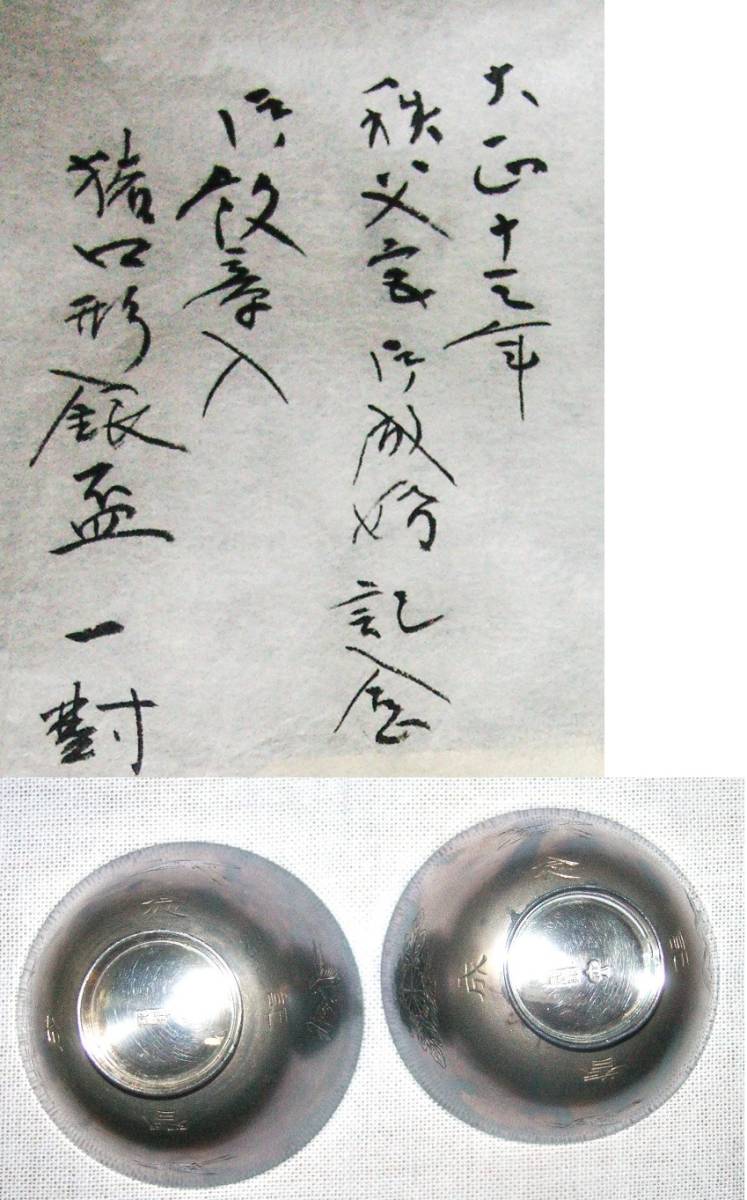 大正十三年
秩父宮御成婚記念
御紋章入
猪口形銀盃一對